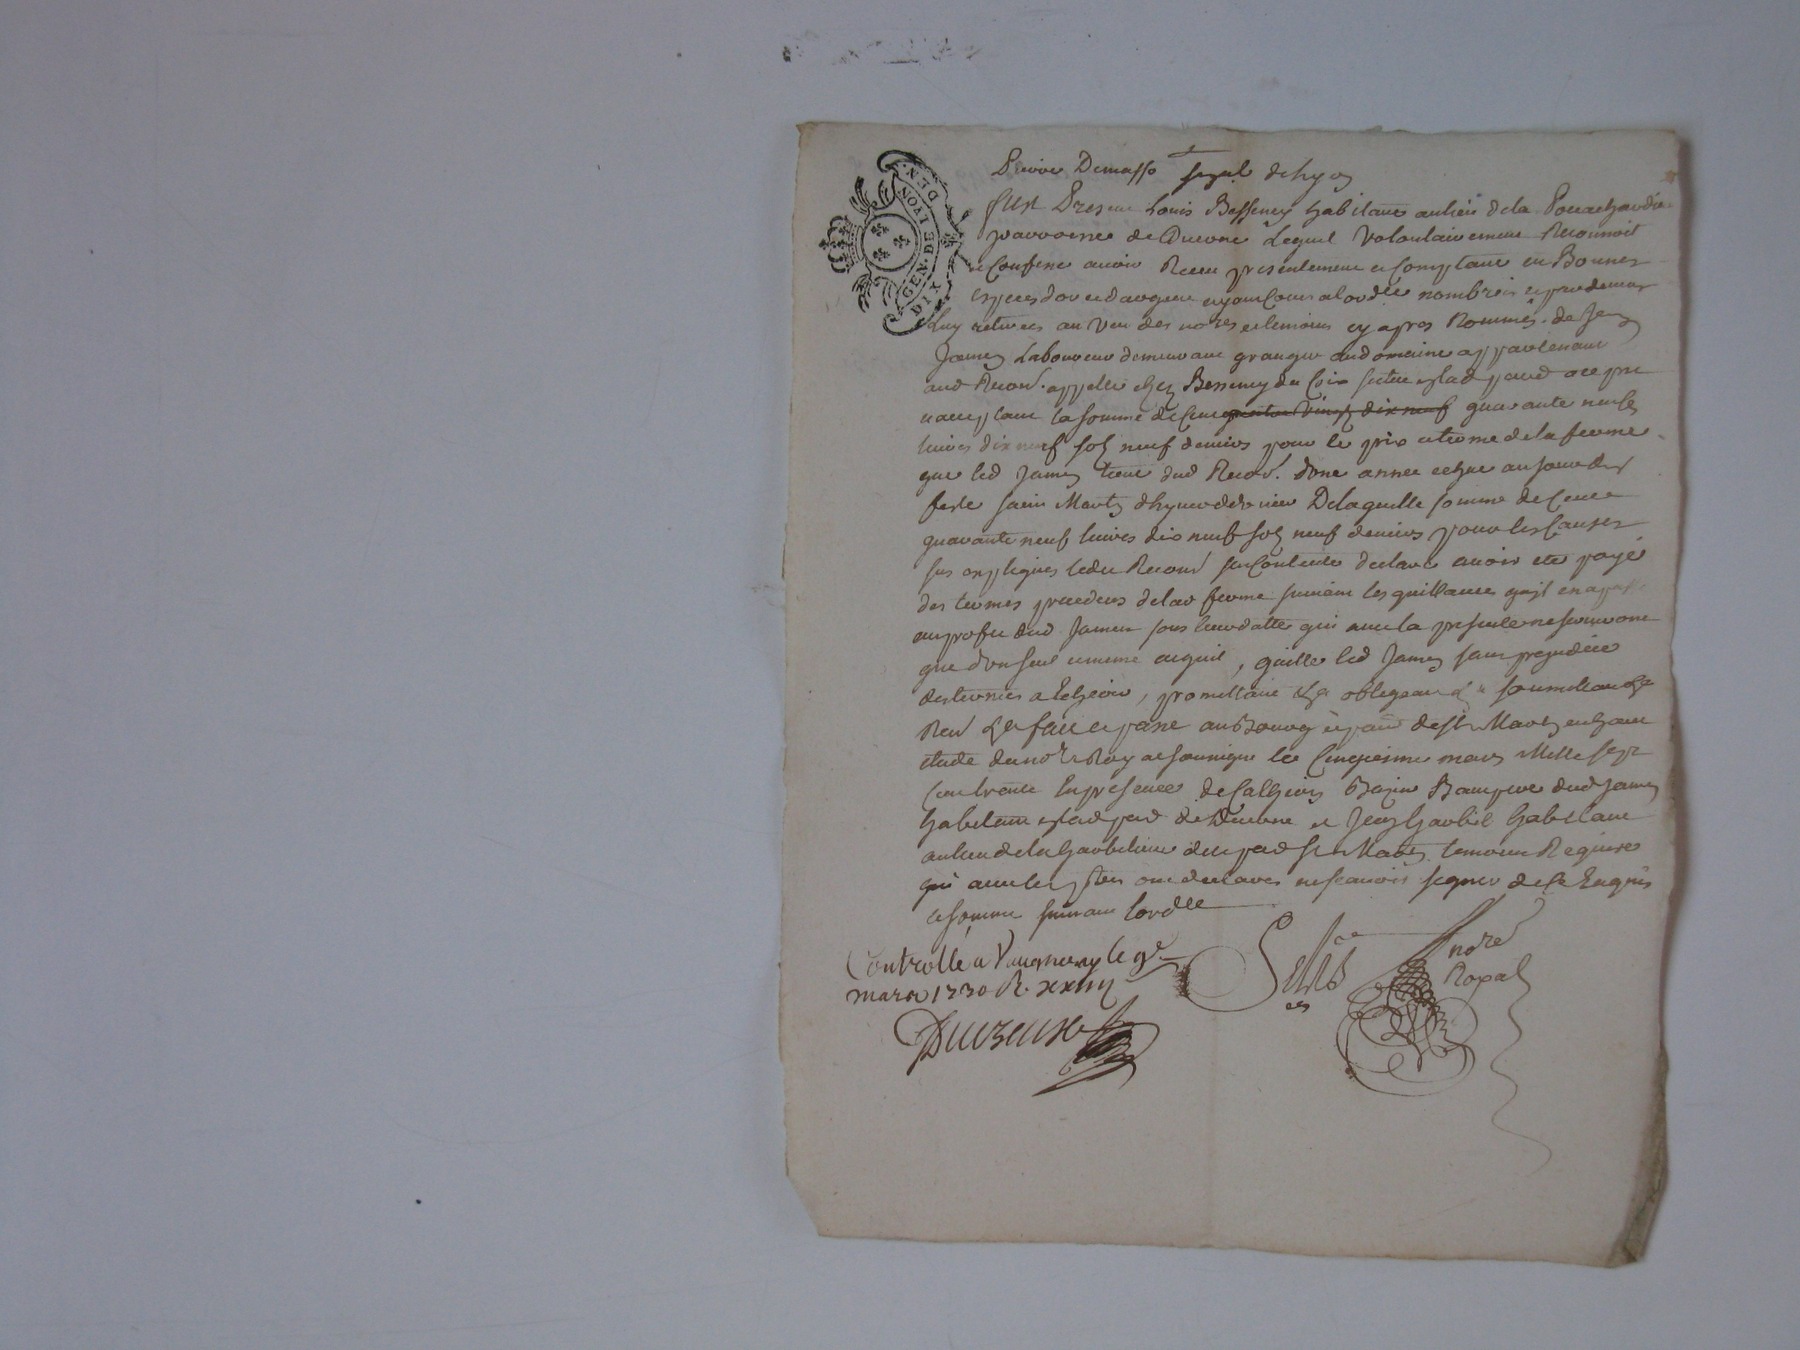 GEN · DE · LYON
DIX DEN ·
Pierre Demasso
fut Present Louis Besseney habitant au lieu de la
parroisse de Duerne Lequel Volontairement Reconnoit
et Confesse avoir Receu presentement et Comptant en Bonnes
especes d'or et d'argent ayant Cours a lord.ce nombrées et par
Luy retirees au Veu des no.re et temoins cy apres Nommés. de Jean
James Laboureur demeurant granger au domaine appartenant
aud Recon.t appellé chez Besseney du
acceptant la somme de Cent quatre Vingt dix neuf quarante neuf
livres dix neuf solz neuf deniers pour le prix et terme de la ferme
que led James tient dud Recon.t d'une annee echue au jour de
feste saint Martin d'hyver dernier De laquelle somme de Cent
quarante neuf livres dix neuf solz neuf deniers pour les Causes
sus expliquées ledit Recon.t se Contente declare avoir eté payé
des termes precedens de lad ferme suivant les quittances qu'il en a
au profit dud James sous leur datte qui avec la presente ne serviront
que d'un seul et meme acquit, quitte led James sans prejudice
des termes a Echeoir, promettant &a obligeant &a soumettant &a
Ren.t &a fait et passé au Bourg et par.e de St Martin en haut
etude du no.re Royal soussigné le Cinquieme mars Mille sept
Cent trente En presence de Bazin dud James
habitant de Duerne et Jean habitant
au lieu de la de lad par.e St Martin temoins Requis
qui avec les parties ont declarés ne scavoir signer de ce Enquis
et sommé suivant l'ord.ce
Controllé a Vaugneray le 9e
mars 1730 R. xxiiij
no.re
Royal